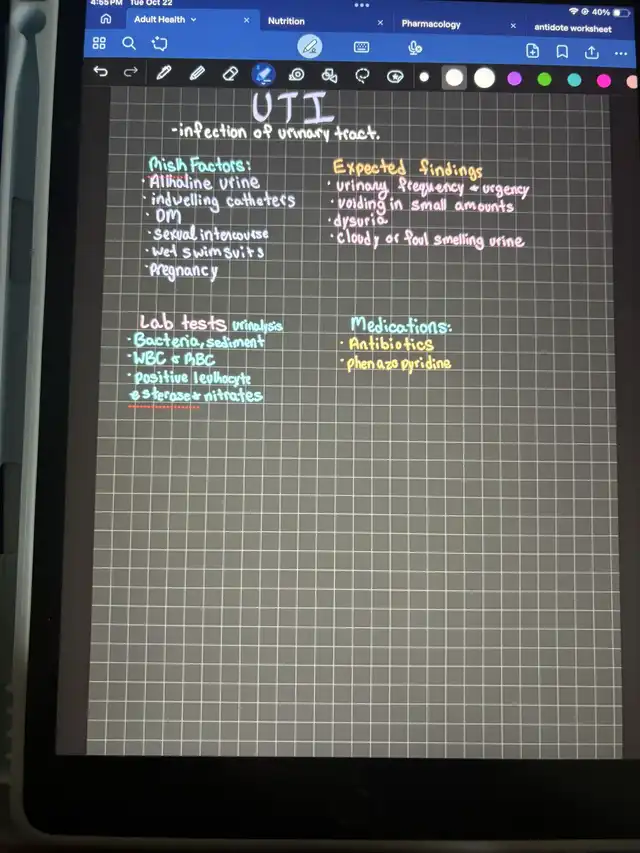 4:55PM Tue Oct 22
40%
Adult Health
Nutrition
Pharmacology
antidote worksheet
UTI
-infection of urinary tract.
Risk Factors:
· Alkaline urine
· indwelling catheters
· DM
· sexual intercourse
· wet swim suits
· pregnancy
Expected findings
· urinary frequency & urgency
· voiding in small amounts
· dysuria
· cloudy or foul smelling urine
Lab tests urinalysis
· Bacteria, sediment
· WBC & RBC
· positive leukocyte
esterase & nitrates
Medications:
· Antibiotics
· phenazopyridine